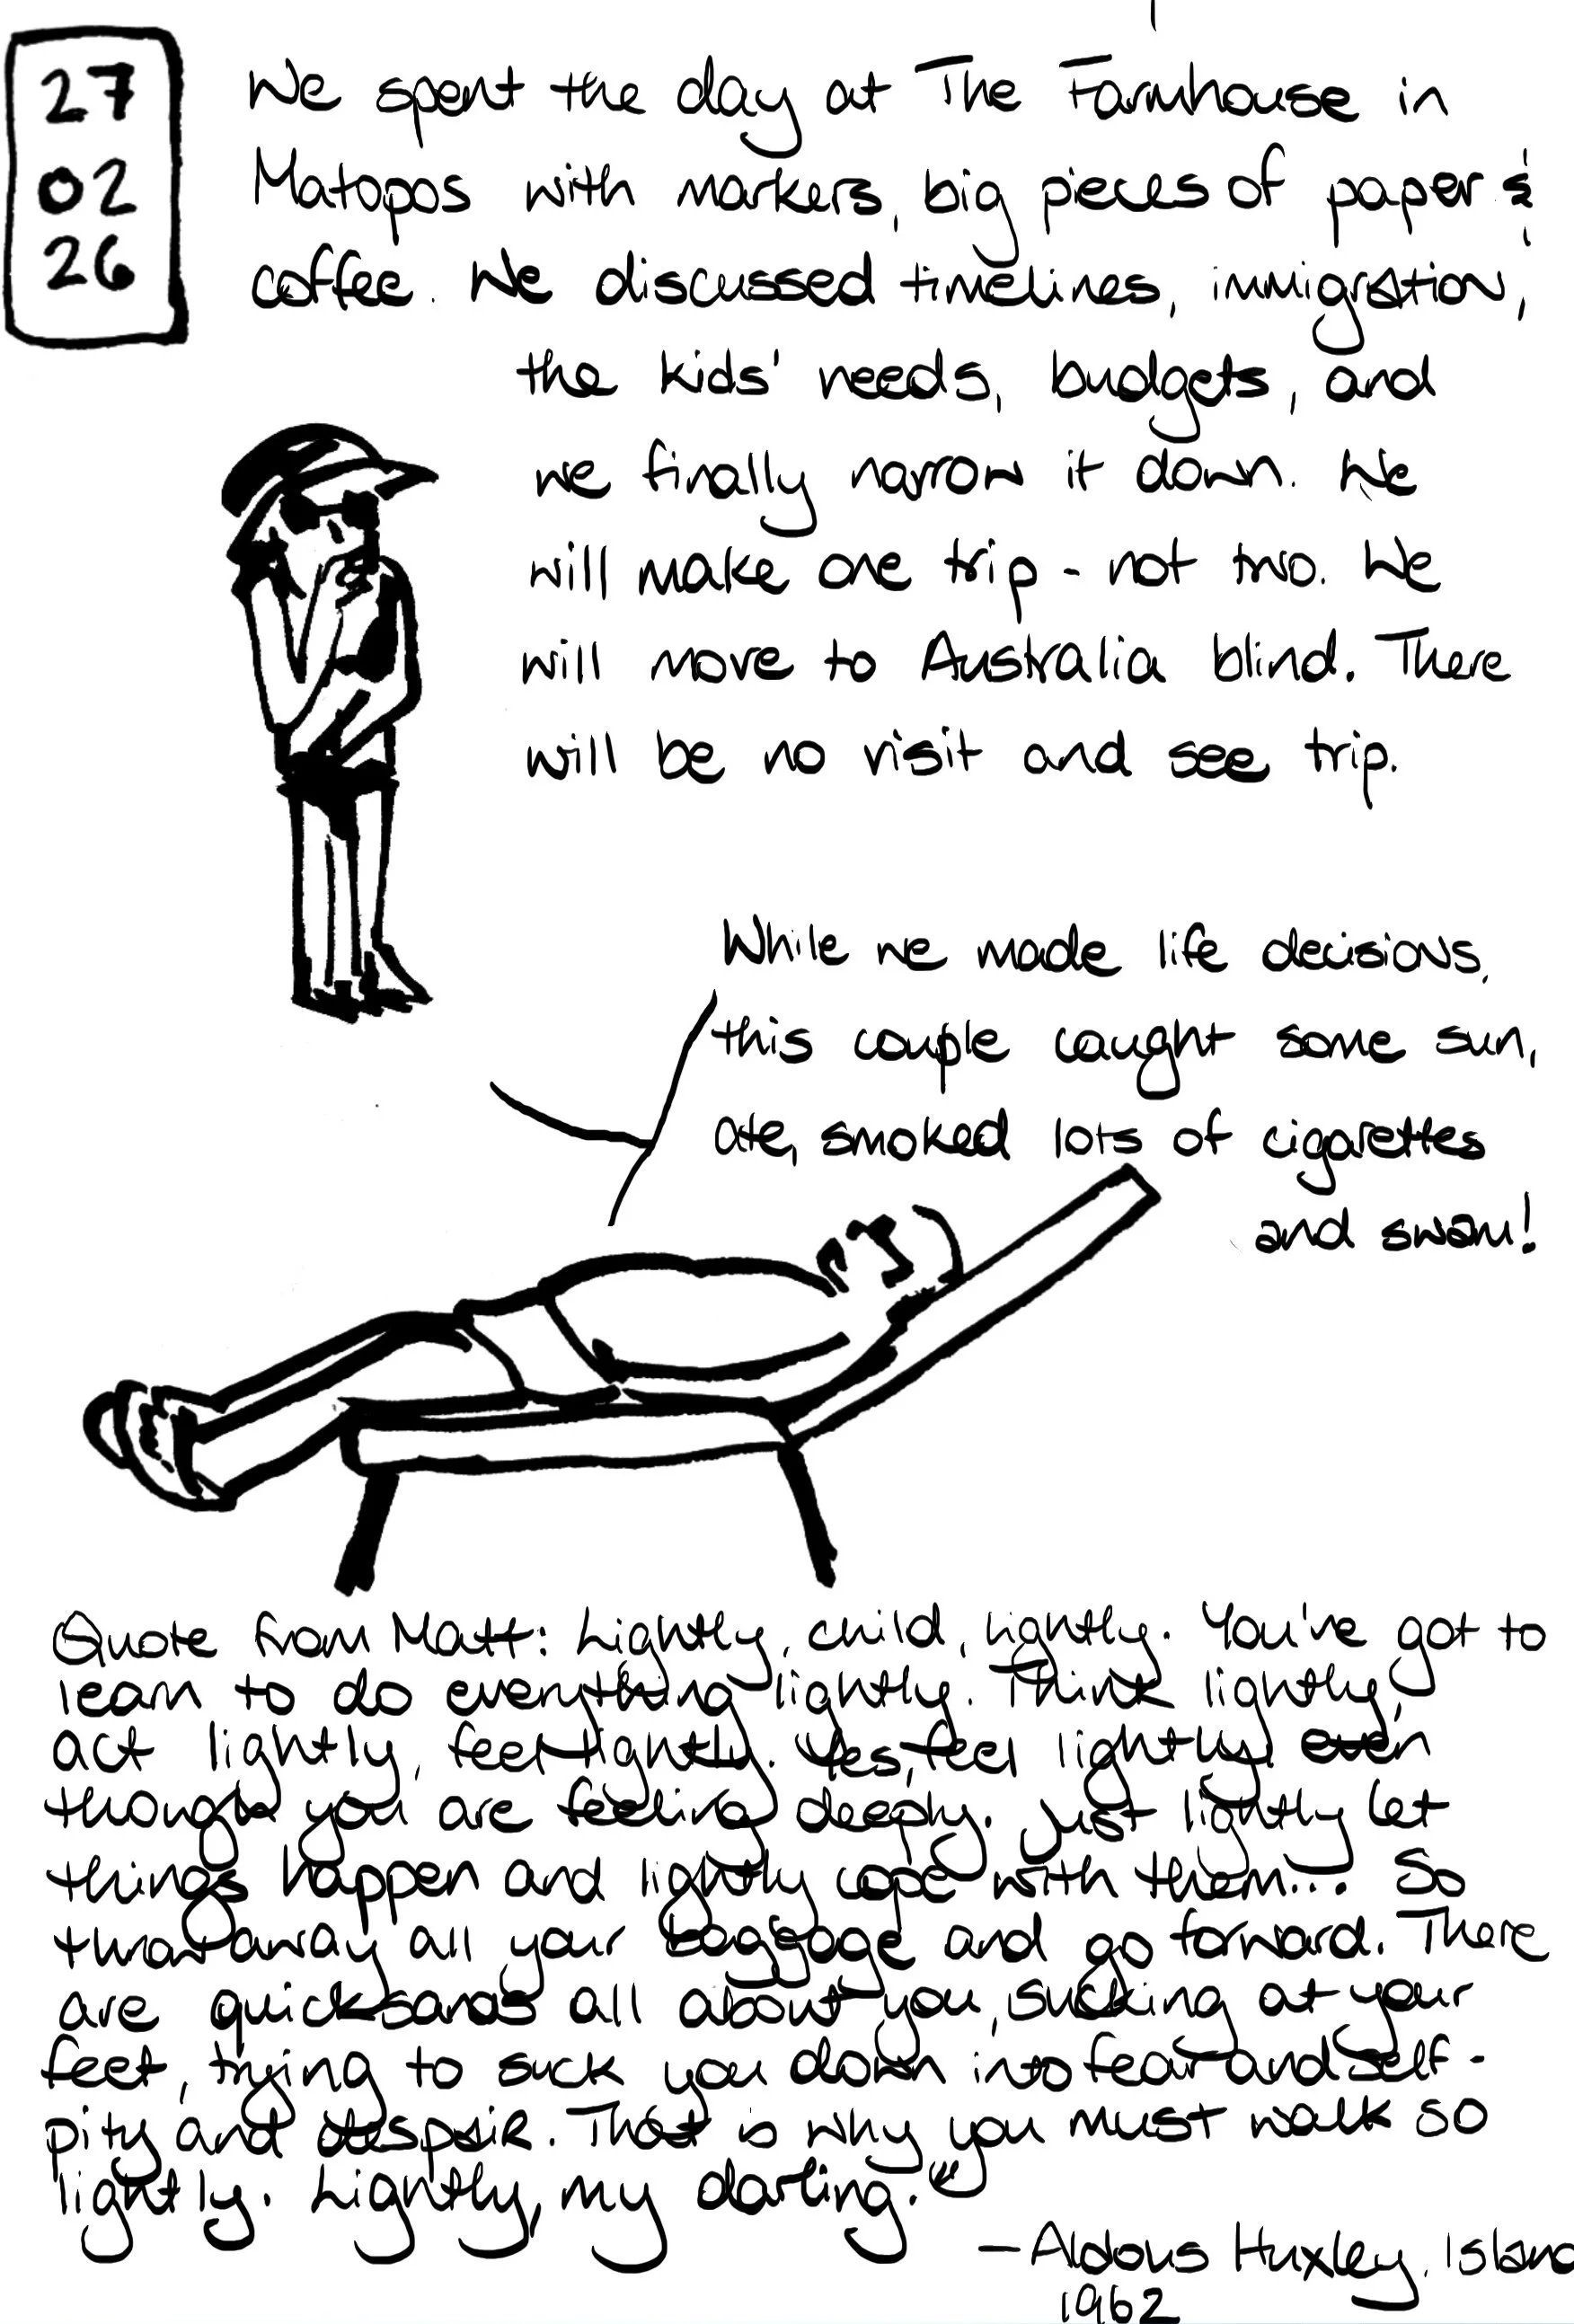 27
02
26
We spent the day at The Farmhouse in
Matopos with markers, big pieces of paper &
coffee. We discussed timelines, immigration,
the kids' needs, budgets, and
we finally narrow it down. We
will make one trip - not two. We
will move to Australia blind. There
will be no visit and see trip.
While we made life decisions,
this couple caught some sun,
ate, smoked lots of cigarettes
and swam!
Quote from Matt: Lightly, child, lightly. You've got to
learn to do everything lightly. Think lightly,
act lightly, feel lightly. Yes, feel lightly, even
though you are feeling deeply. Just lightly let
things happen and lightly cope with them... So
throw away all your baggage and go forward. There
are quicksands all about you, sucking at your
feet, trying to suck you down into fear and self-
pity and despair. That is why you must walk so
lightly. Lightly, my darling."
—Aldous Huxley, Island
1962